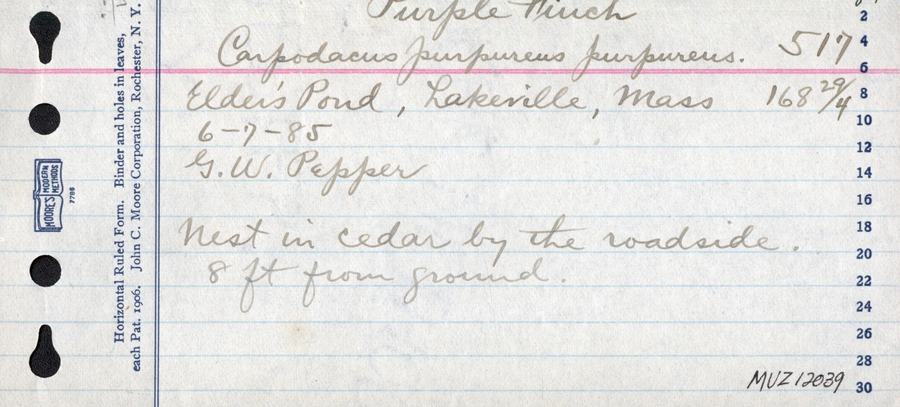 Purple Finch
Carpodacus purpureus purpureus. 517
Elder's Pond, Lakeville, Mass 168 29/4
6-7-85
G. W. Pepper
Nest in cedar by the roadside.
8 ft from ground.
MUZ12039
2
4
6
8
10
12
14
16
18
20
22
24
26
28
30
Horizontal Ruled Form. Binder and holes in leaves,
each Pat. 1906. John C. Moore Corporation, Rochester, N. Y.
MOORE'S MODERN
METHODS
7788